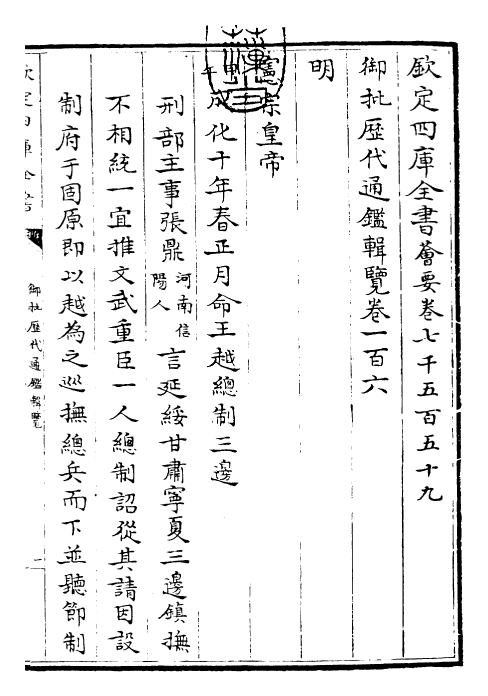 欽定四庫全書薈要卷七千五百五十九
御批歷代通鑑輯覽卷一百六
明
憲宗皇帝
甲午
成化十年春正月命王越總制三邊
刑部主事張鼎河南信陽人言延綏甘肅寧夏三邊鎮撫
不相統一宜推文武重臣一人總制詔從其請因設
制府于固原即以越為之巡撫總兵而下並聽節制
欽定四庫全書
御批歷代通鑑輯覽
一